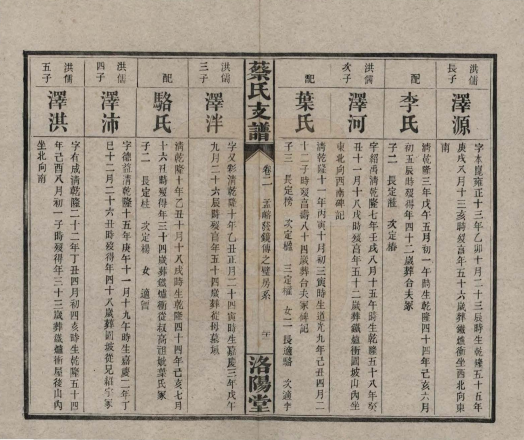 洪儒
長子
澤源
字本崑雍正十三年乙卯十月二十三辰時生乾隆五十五年
庚戌八月十三亥時歿壽年五十六歲葬鐵爐衝坐西北向東
南
配
李氏
清乾隆三年戊午五月初一午時生乾隆四十四年己亥六月
初五辰時歿得年四十二歲葬台夫冢
子二 長定 次定椿
洪儒
次子
澤河
字紹禹清乾隆七年壬戌八月十五午時生乾隆五十八年癸
丑十一月十八戌時歿壽年五十二歲葬鐵爐衝圓坡山內坐
東北向西南碑記
配
葉氏
清乾隆十一年丙寅十月初三寅時生道光九年己丑四月二
十二子時歿壽高八十四歲葬台夫冢碑記
子三 長定榜 次定楹 三定權 女二 長適駱 次適李
蔡氏支譜
卷二 孟 裔鏡傳之璧房系
洛陽堂
洪儒
三子
澤泮
字又彩清乾隆十年乙丑正月二十四寅時生嘉慶三年戊午
九月二十六辰時歿壽年五十四歲葬 母墓
配
駱氏
清乾隆十年乙丑十月十八戌時生乾隆四十四年己亥七月
十六酉時歿得年三十五歲葬鐵爐衝從叔高祖妣葉氏冢
子二 長定桂 次定楊 女 適賀
洪儒
四子
澤沛
字德 清乾隆十五年庚午十一月十九午時生嘉慶二年丁
巳十二月二十六丑時歿得年四十八歲葬圓坡從兄紹宇冢
洪儒
五子
澤洪
字有成清乾隆二十二年丁丑四月初四亥時生乾隆五十四
年己酉八月初一子時歿得年三十三歲葬鐵爐衝屋後山內
坐北向南